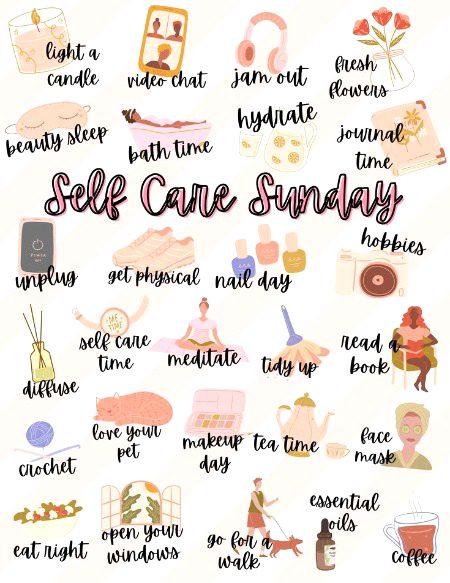 light a
candle
video chat
jam out
fresh
flowers
beauty sleep
bath time
hydrate
journal
time
Self Care Sunday
unplug
get physical
nail day
hobbies
self care
time
meditate
tidy up
read a
book
diffuse
crochet
love your
pet
makeup
day
tea time
face
mask
eat right
open your
windows
go for a
walk
essential
oils
coffee
ME
TIME
POWER
OFF